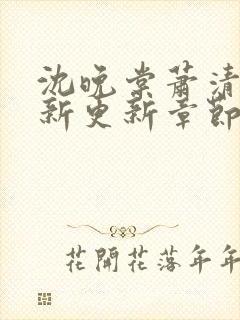 沈晚棠蕭清
新更新章節
花開花落年年